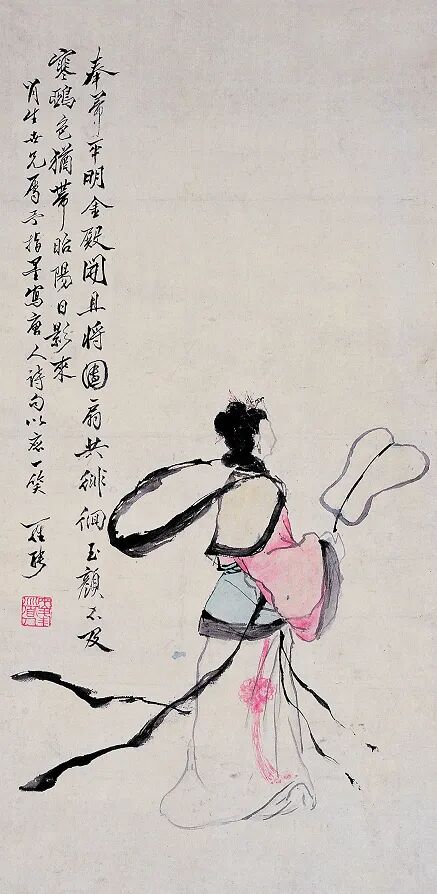 奉帚平明金殿開且將團扇共徘徊玉顏不及
寒鵶色猶帶昭陽日影來
肖生世兄屬予指墨寫唐人詩句以應一笑 羅聘